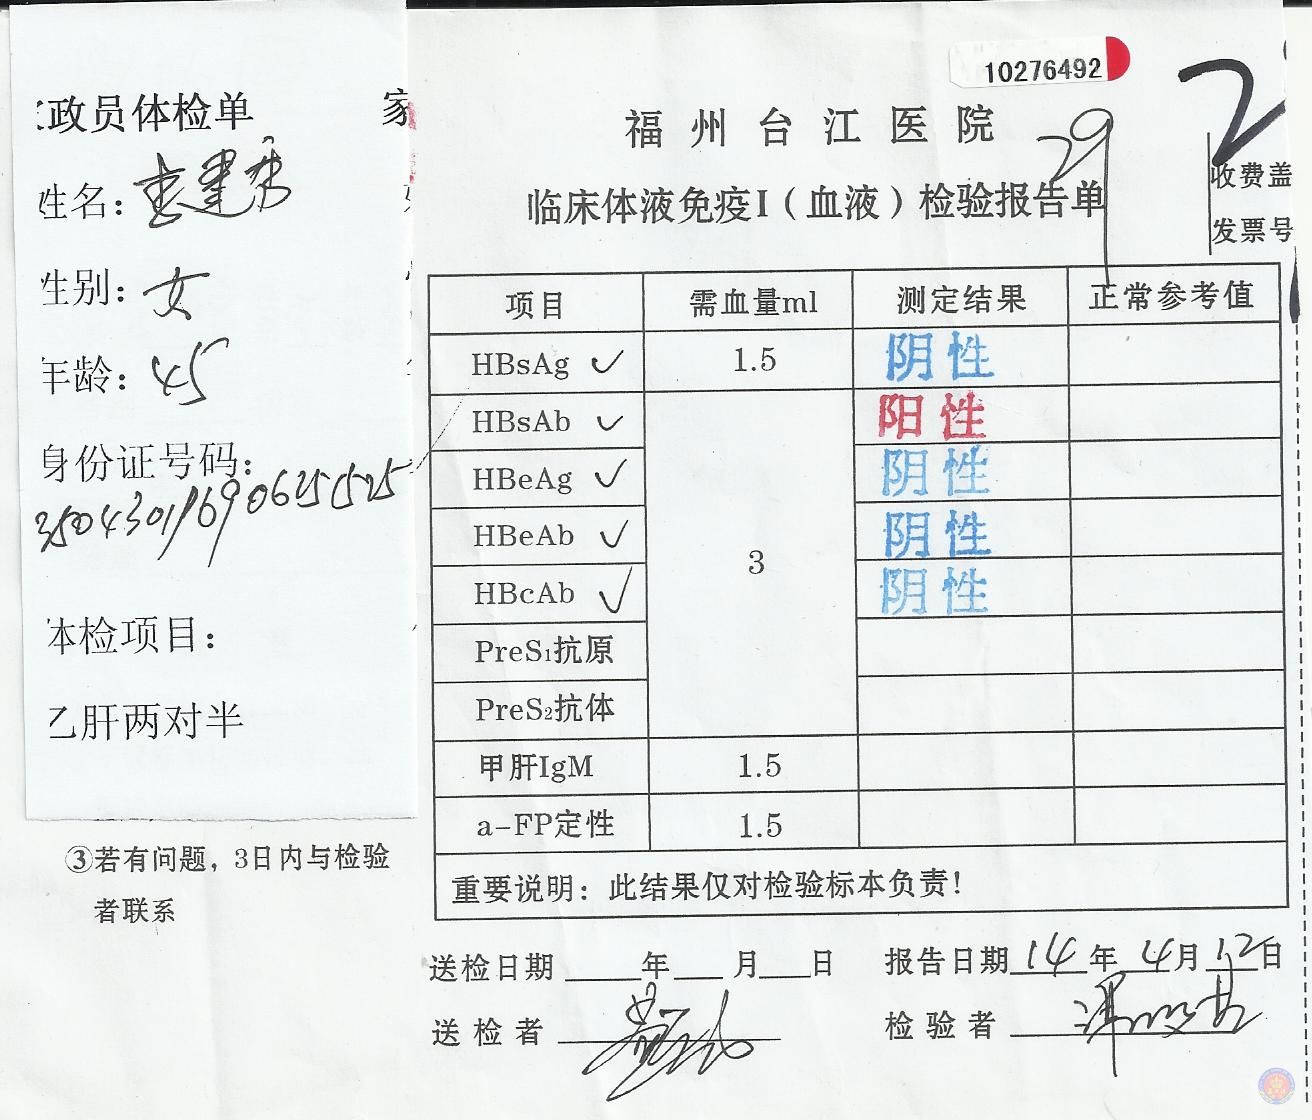 10276492
政员体检单 家
姓名：
性别：女
年龄：45
身份证号码：
体检项目：
乙肝两对半
③若有问题，3日内与检验
者联系
福州台江医院
29
临床体液免疫I（血液）检验报告单
收费盖
发票号
项目 需血量ml 测定结果 正常参考值
HBsAg ✓ 1.5 阴性
HBsAb ✓ 阳性
HBeAg ✓ 阴性
HBeAb ✓ 3 阴性
HBcAb ✓ 阴性
PreS₁抗原
PreS₂抗体
甲肝IgM 1.5
a-FP定性 1.5
重要说明：此结果仅对检验标本负责！
送检日期____年___月___日 报告日期14年4月12日
送检者 检验者